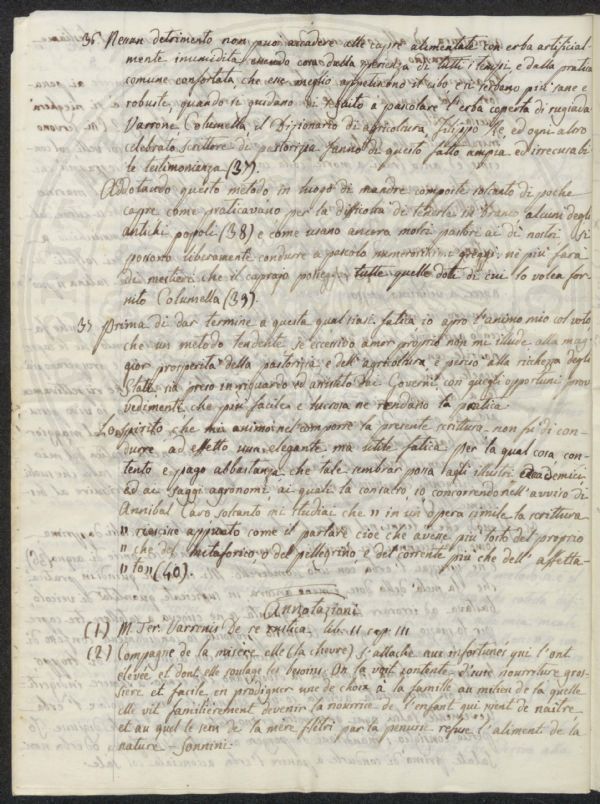 36 Nessun detrimento non può accadere alle capre alimentate con erba artificial-
mente inumidita, essendo cosa dalla sperienza di tutti i tempi, e dalla pratica
comune confortata che esse meglio appetiscono il cibo e si rendano più sane e
robuste, quando si guidano di fatto a pascolare l'erba coperta di rugiada
Varrone Columella, il Dizionario di agricoltura, Filippo Re, ed ogni altro
celebrato scrittore di pastorizia fanno di questo fatto ampia, ed irrecusabi-
le testimonianza (37).
Addotando questo metodo in luogo di mandre composte soltanto di poche
capre come praticavano per la difficoltà di tenerle in branco alcuni degli
antichi popoli (38) e come usano ancora molti pastori ai dì nostri si
possono liberamente condurre a pascolo numerosissimi greggi, nè più farà
di mestieri che il caprajo possegga tutte quelle doti di cui lo volea for-
nito Columella (39).
37 Prima di dar termine a questa qual siasi fatica io apro l'animo mio col voto
che un metodo tendente se eccessivo amor proprio non mi illude alla mag-
gior prosperità della pastorizia e dell'agricoltura e perciò alla richezza degli
Stati, sia preso in riguardo ed assistito dai Governi con quegli opportuni prov-
vedimenti che più facile e lucrosa ne rendano la pratica.
Lo spirito che mi animò nel comporre la presente scrittura non fu di con-
durre ad effetto una elegante ma utile fatica per la qual cosa con-
tento e pago abbastanza che tale sembrar possa agli illustri accademici
ed ai saggi agronomi ai quali la consacro io concorrendo nell'avviso di
Annibal Caro soltanto mi studiai che " in un opera simile la scrittura
" riescisse appunto come il parlare cioè che avesse più tosto del proprio
" che del metaforico, o del pellegrino, e del corrente più che dell'affetta-
" to" (40).
Annotazioni
(1) M. Ter. Varronis De re rustica lib. II cap. III
(2) Compagne de la misère elle (la chevre) s'attache aux infortunés qui l'ont
élevée et dont elle soulage les besoins. On la voit contente d'une nourriture gros-
sière et facile, en prodiguer une de choix à la famille au milieu de la quelle
elle vit familièrement devenir la nourrice de l'enfant qui vient de naitre
et au quel le sein de la mère flétri par la penurie refuse l'aliment de la
nature - Sonnini.